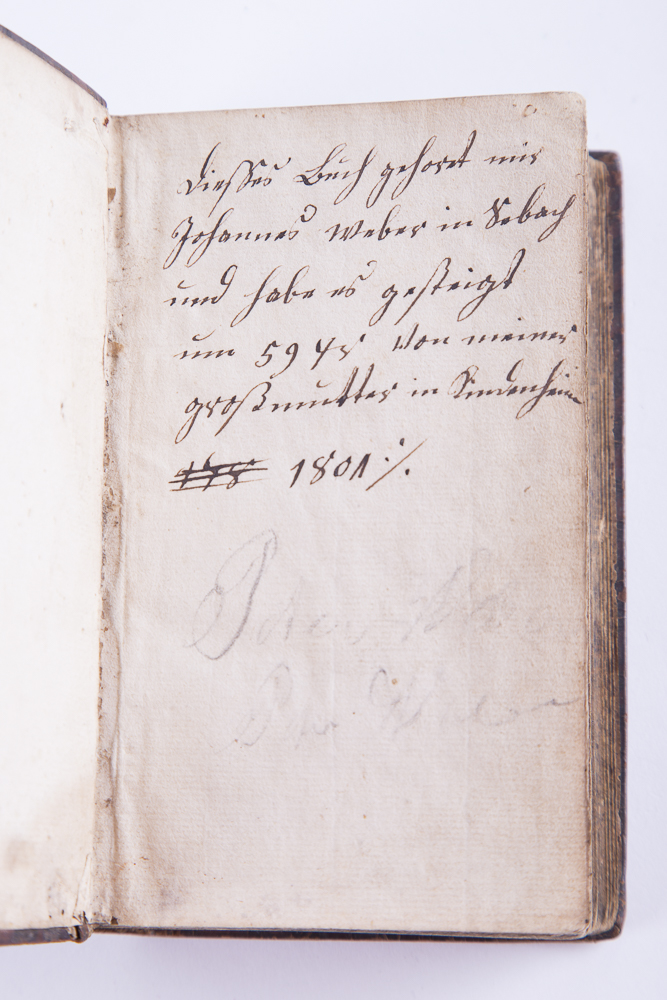 Diesses Buch gehoret mir
Johannes Weber in Sebach
und habe es gesteigt
um 59 xr Von meiner
großmutter in
1801 ·/.
Peter
Peter